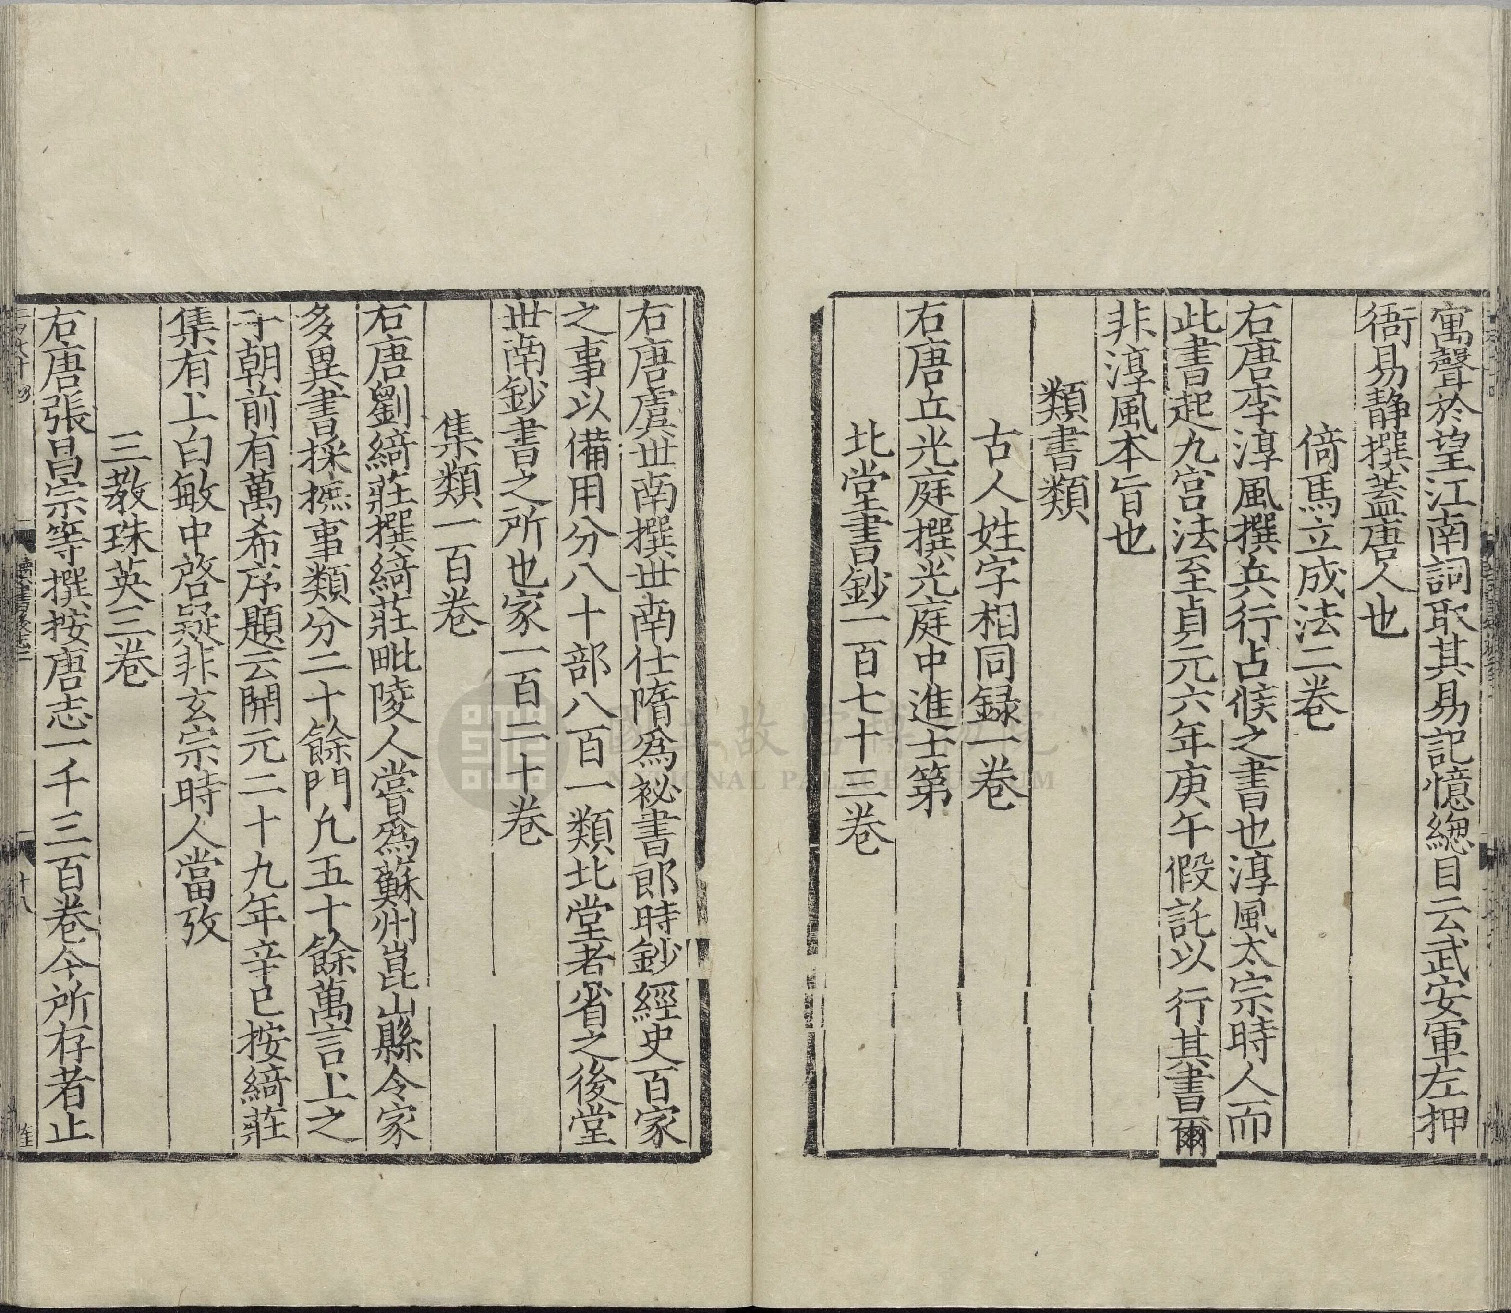 寓聲於望江南詞取其易記憶緫目云武安軍左押
衙易靜撰蓋唐人也
倚馬立成法二卷
右唐李淳風撰兵行占候之書也淳風太宗時人而
此書起九宫法至貞元六年庚午假託以行其書爾
非淳風本旨也
類書類
古人姓字相同録一卷
右唐丘光庭撰光庭中進士第
北堂書鈔一百七十三卷
右唐虞世南撰世南仕隋爲祕書郎時鈔經史百家
之事以備用分八十部八百一類北堂者省之後堂
世南鈔書之所也家一百二十卷
集類一百卷
右唐劉綺莊撰綺莊毗陵人嘗爲蘇州崑山縣令家
多異書採摭事類分二十餘門凢五十餘萬言上之
于朝前有萬希序題云開元二十九年辛巳按綺莊
集有上白敏中啓疑非玄宗時人當攷
三教珠英三卷
右唐張昌宗等撰按唐志一千三百卷今所存者止
十八
國立故宮博物院
NATIONAL PALACE MUSEUM